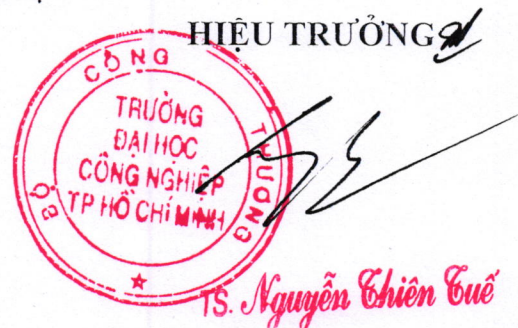 HIỆU TRƯỞNG
BỘ CÔNG THƯƠNG
TRƯỜNG
ĐẠI HỌC
CÔNG NGHIỆP
TP HỒ CHÍ MINH
TS. Nguyễn Thiên Tuế